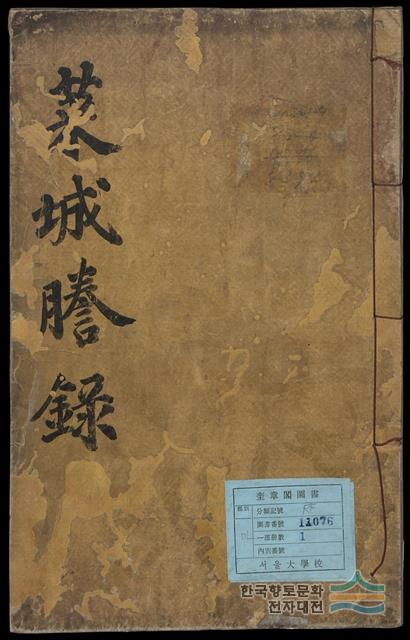 城謄錄
奎章閣圖書
分類記號
圖書番號 11076
一部冊數 1
內容番號
서울大學校
한국향토문화
전자대전